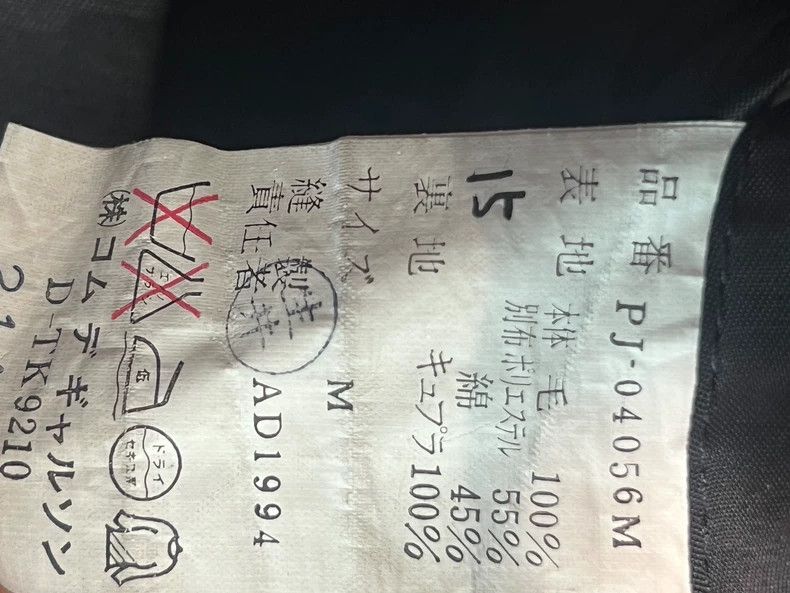 品番 PJ-04056M
表地 本体 毛 100%
別布 ポリエステル 55%
15 綿 45%
裏地 キュプラ 100%
サイズ M
縫製
責任者 AD1994
低 ドライ
セキユ系
(株)コムデギャルソン
D-TK9210